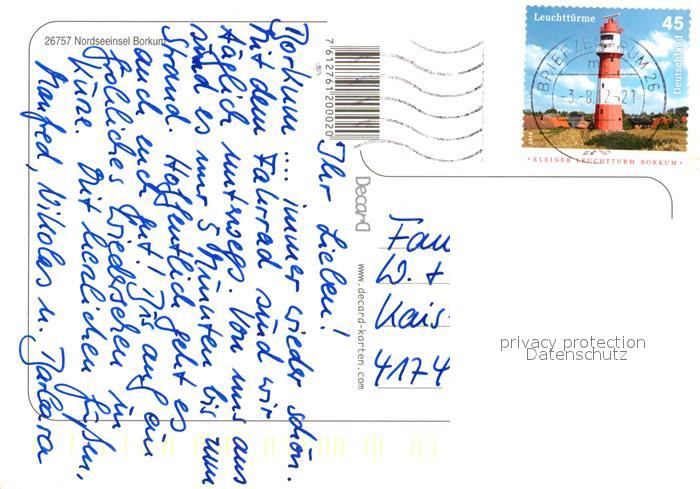 26757 Nordseeinsel Borkum
7612761200020
Ihr Lieben!
Borkum .... immer wieder schön.
Mit dem Fahrrad sind wir
täglich unterwegs. Von uns aus
sind es nur 5 Minuten bis zum
Strand. Hoffentlich geht es
auch euch gut! Bis auf ein
fröhliches Wiedersehen in
Kürze. Mit herzlichen Grüßen,
Manfred, Nikolas u. Barbara
DecarD
www.decard-karten.com
Leuchttürme 45
Deutschland
BRIEFZENTRUM 26
KLEINER LEUCHTTURM BORKUM
Fam
W. +
Kais
4174
privacy protection
Datenschutz